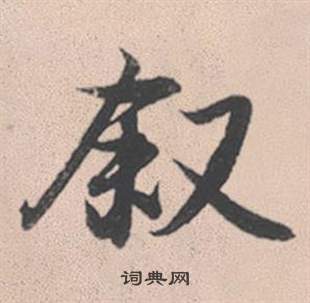 叙
词典网